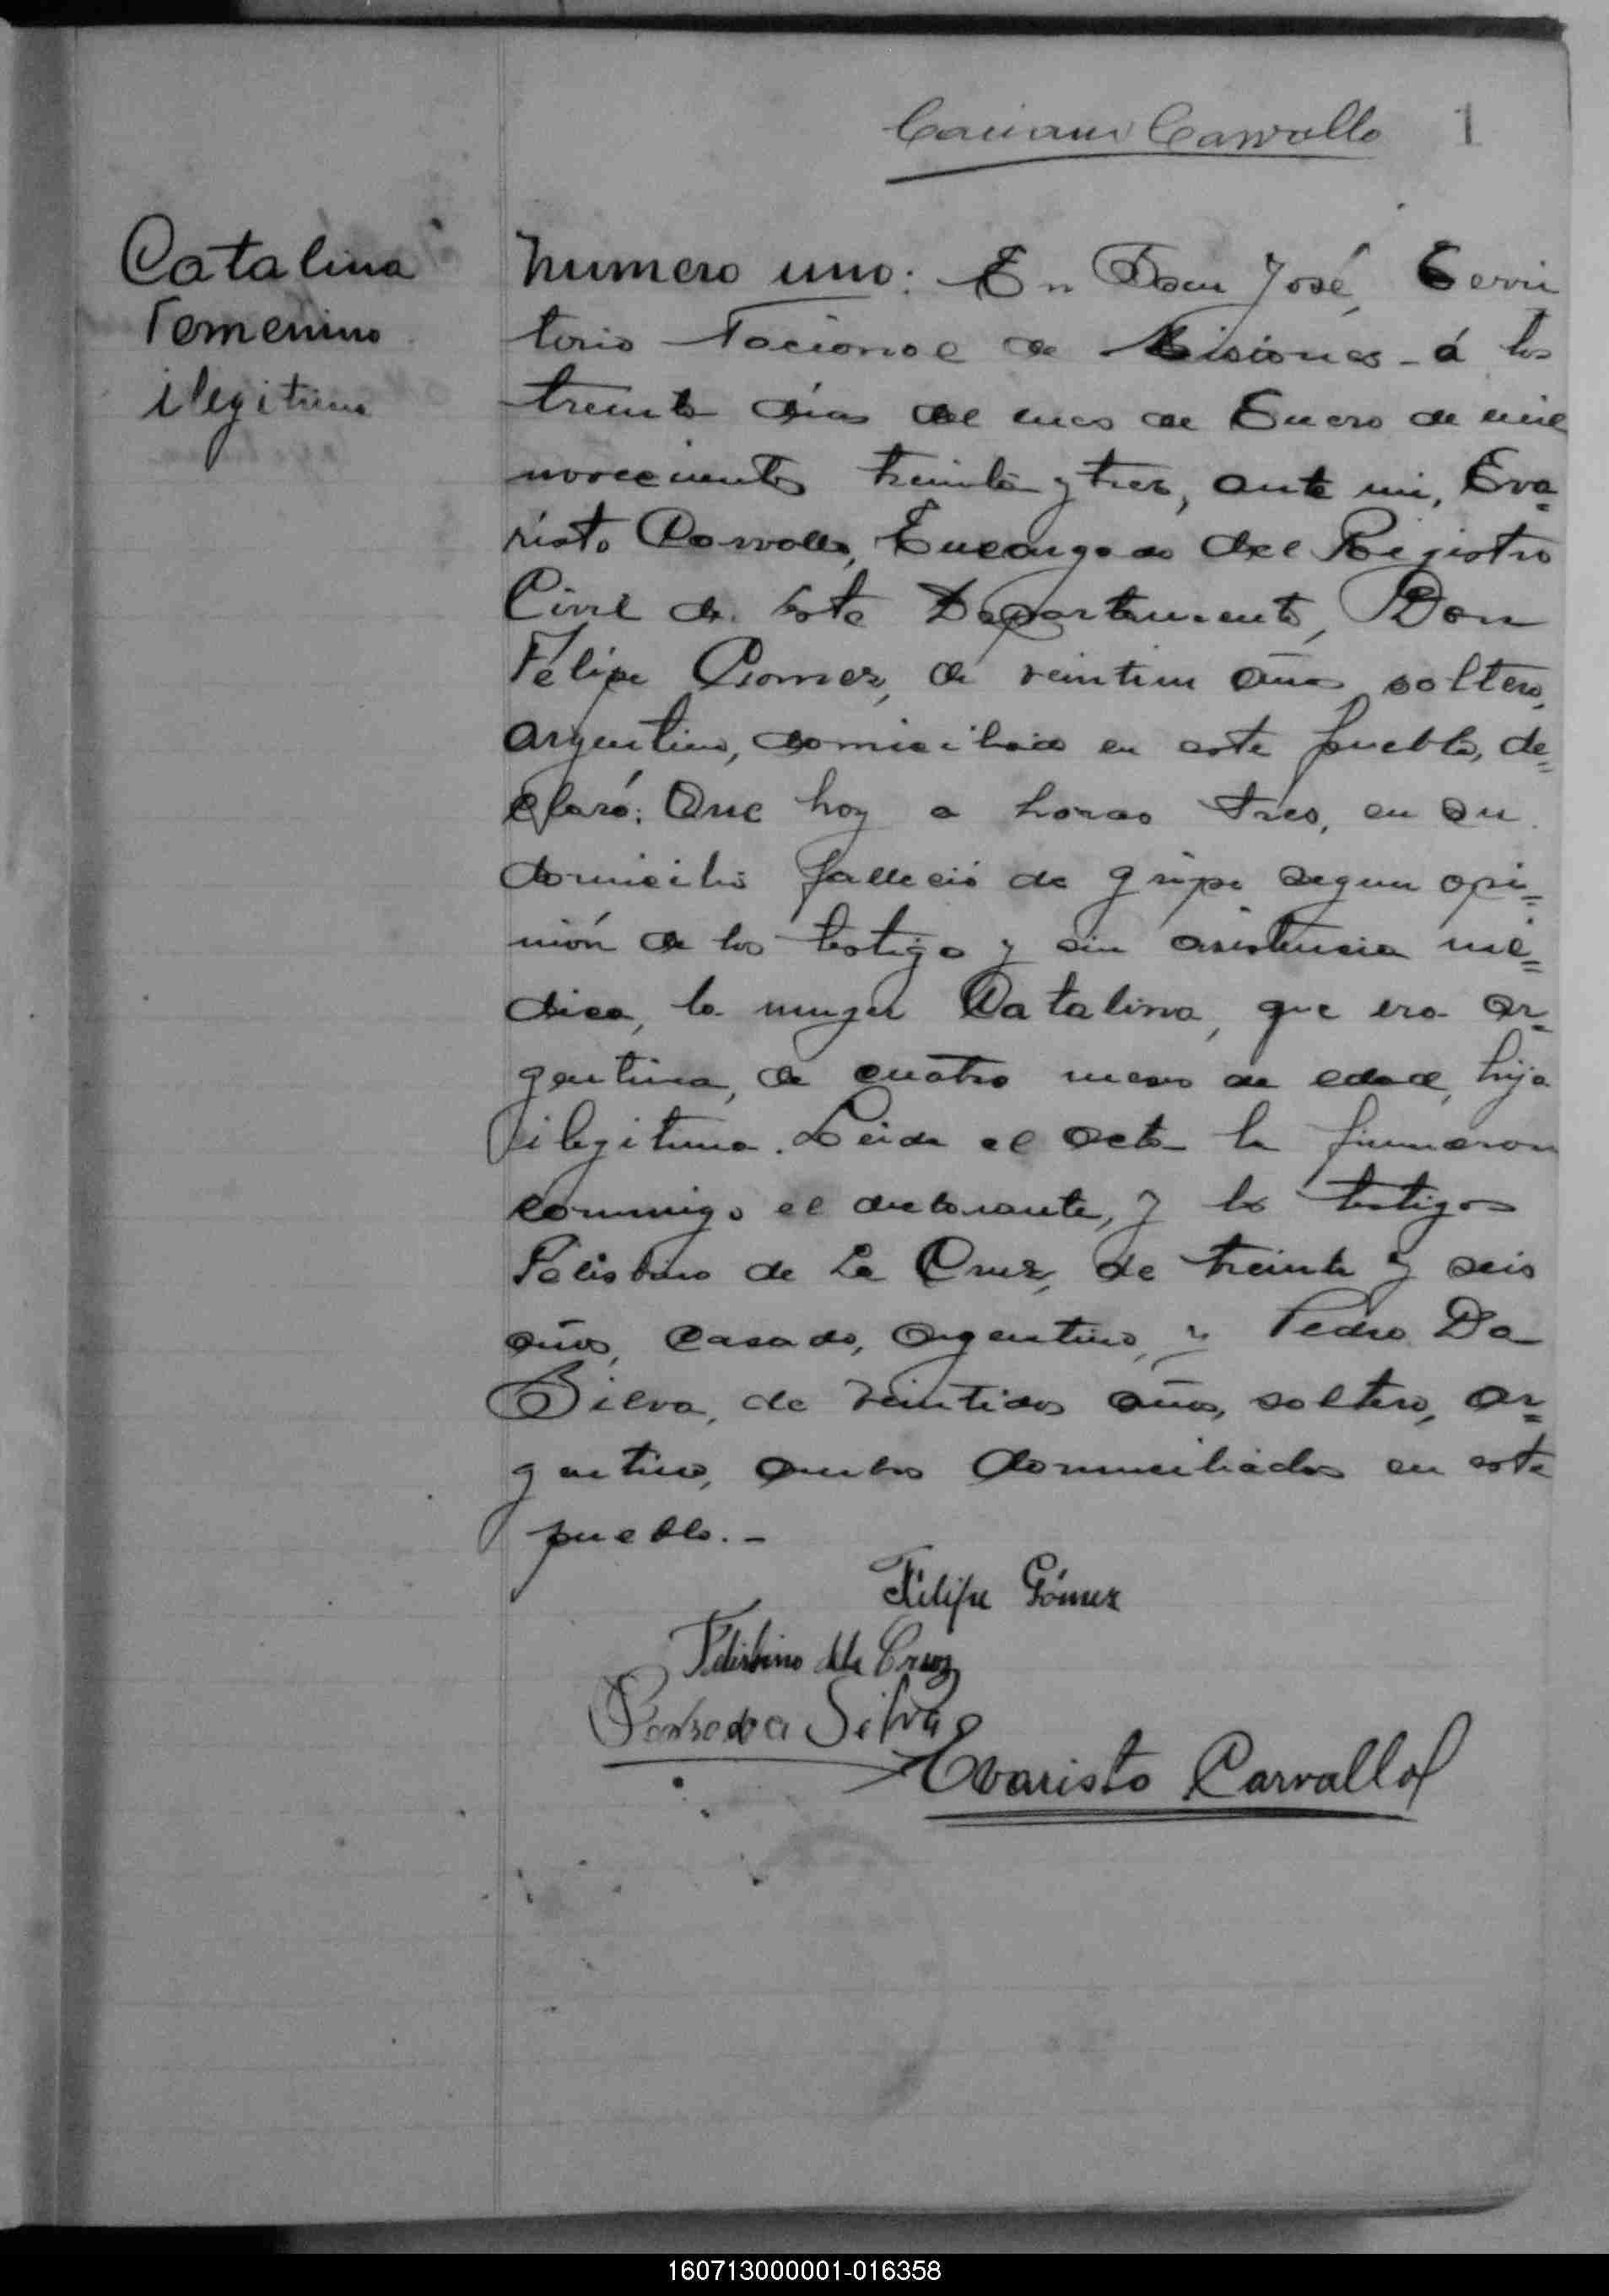 Carvallo 1
Catalina
Femenino
ilegitima
Numero uno: En San José, Terri
torio Nacional de Misiones - á los
treinta días del mes de Enero de mil
novecientos treinta y tres, ante mi, Eva=
risto Carvallo, Encargado del Registro
Civil de este Departamento, Don
Felipe Gomez, de veintiun años soltero,
argentino, domiciliado en este pueblo, de=
claró: Que hoy a horas tres, en su
domicilio falleció de gripe segun opi=
nión de los testigo y sin asistencia mé=
dica, la muger Catalina, que era ar=
gentina, de cuatro meses de edad, hija
ilegitima. Leida el acta la firmaron
conmigo el declarante, y los testigos
Felisbino de La Cruz, de treinta y seis
años, casado, argentino, y Pedro Da
Silva, de veintidos años, soltero, ar=
gentino, ambos domiciliados en este
pueblo.-
Felipe Gómez
Felisbino de la Cruz
Pedro da Silva
Evaristo Carvallo
160713000001-016358